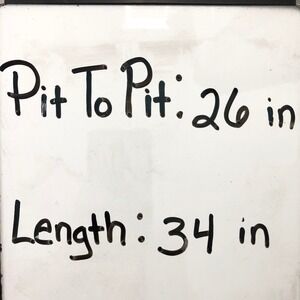 Pit To Pit: 26 in
Length: 34 in